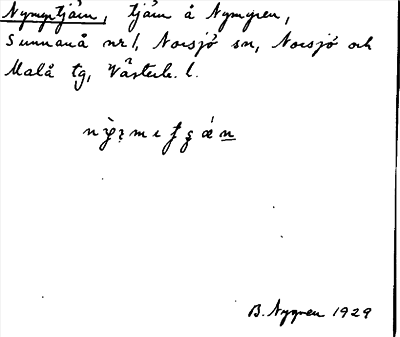 Nymyrtjärn, tjärn å Nymyren,
Sunnanå nr 1, Norsjö sn, Norsjö och
Malå tg, Västerb. l.
B. Nygren 1929